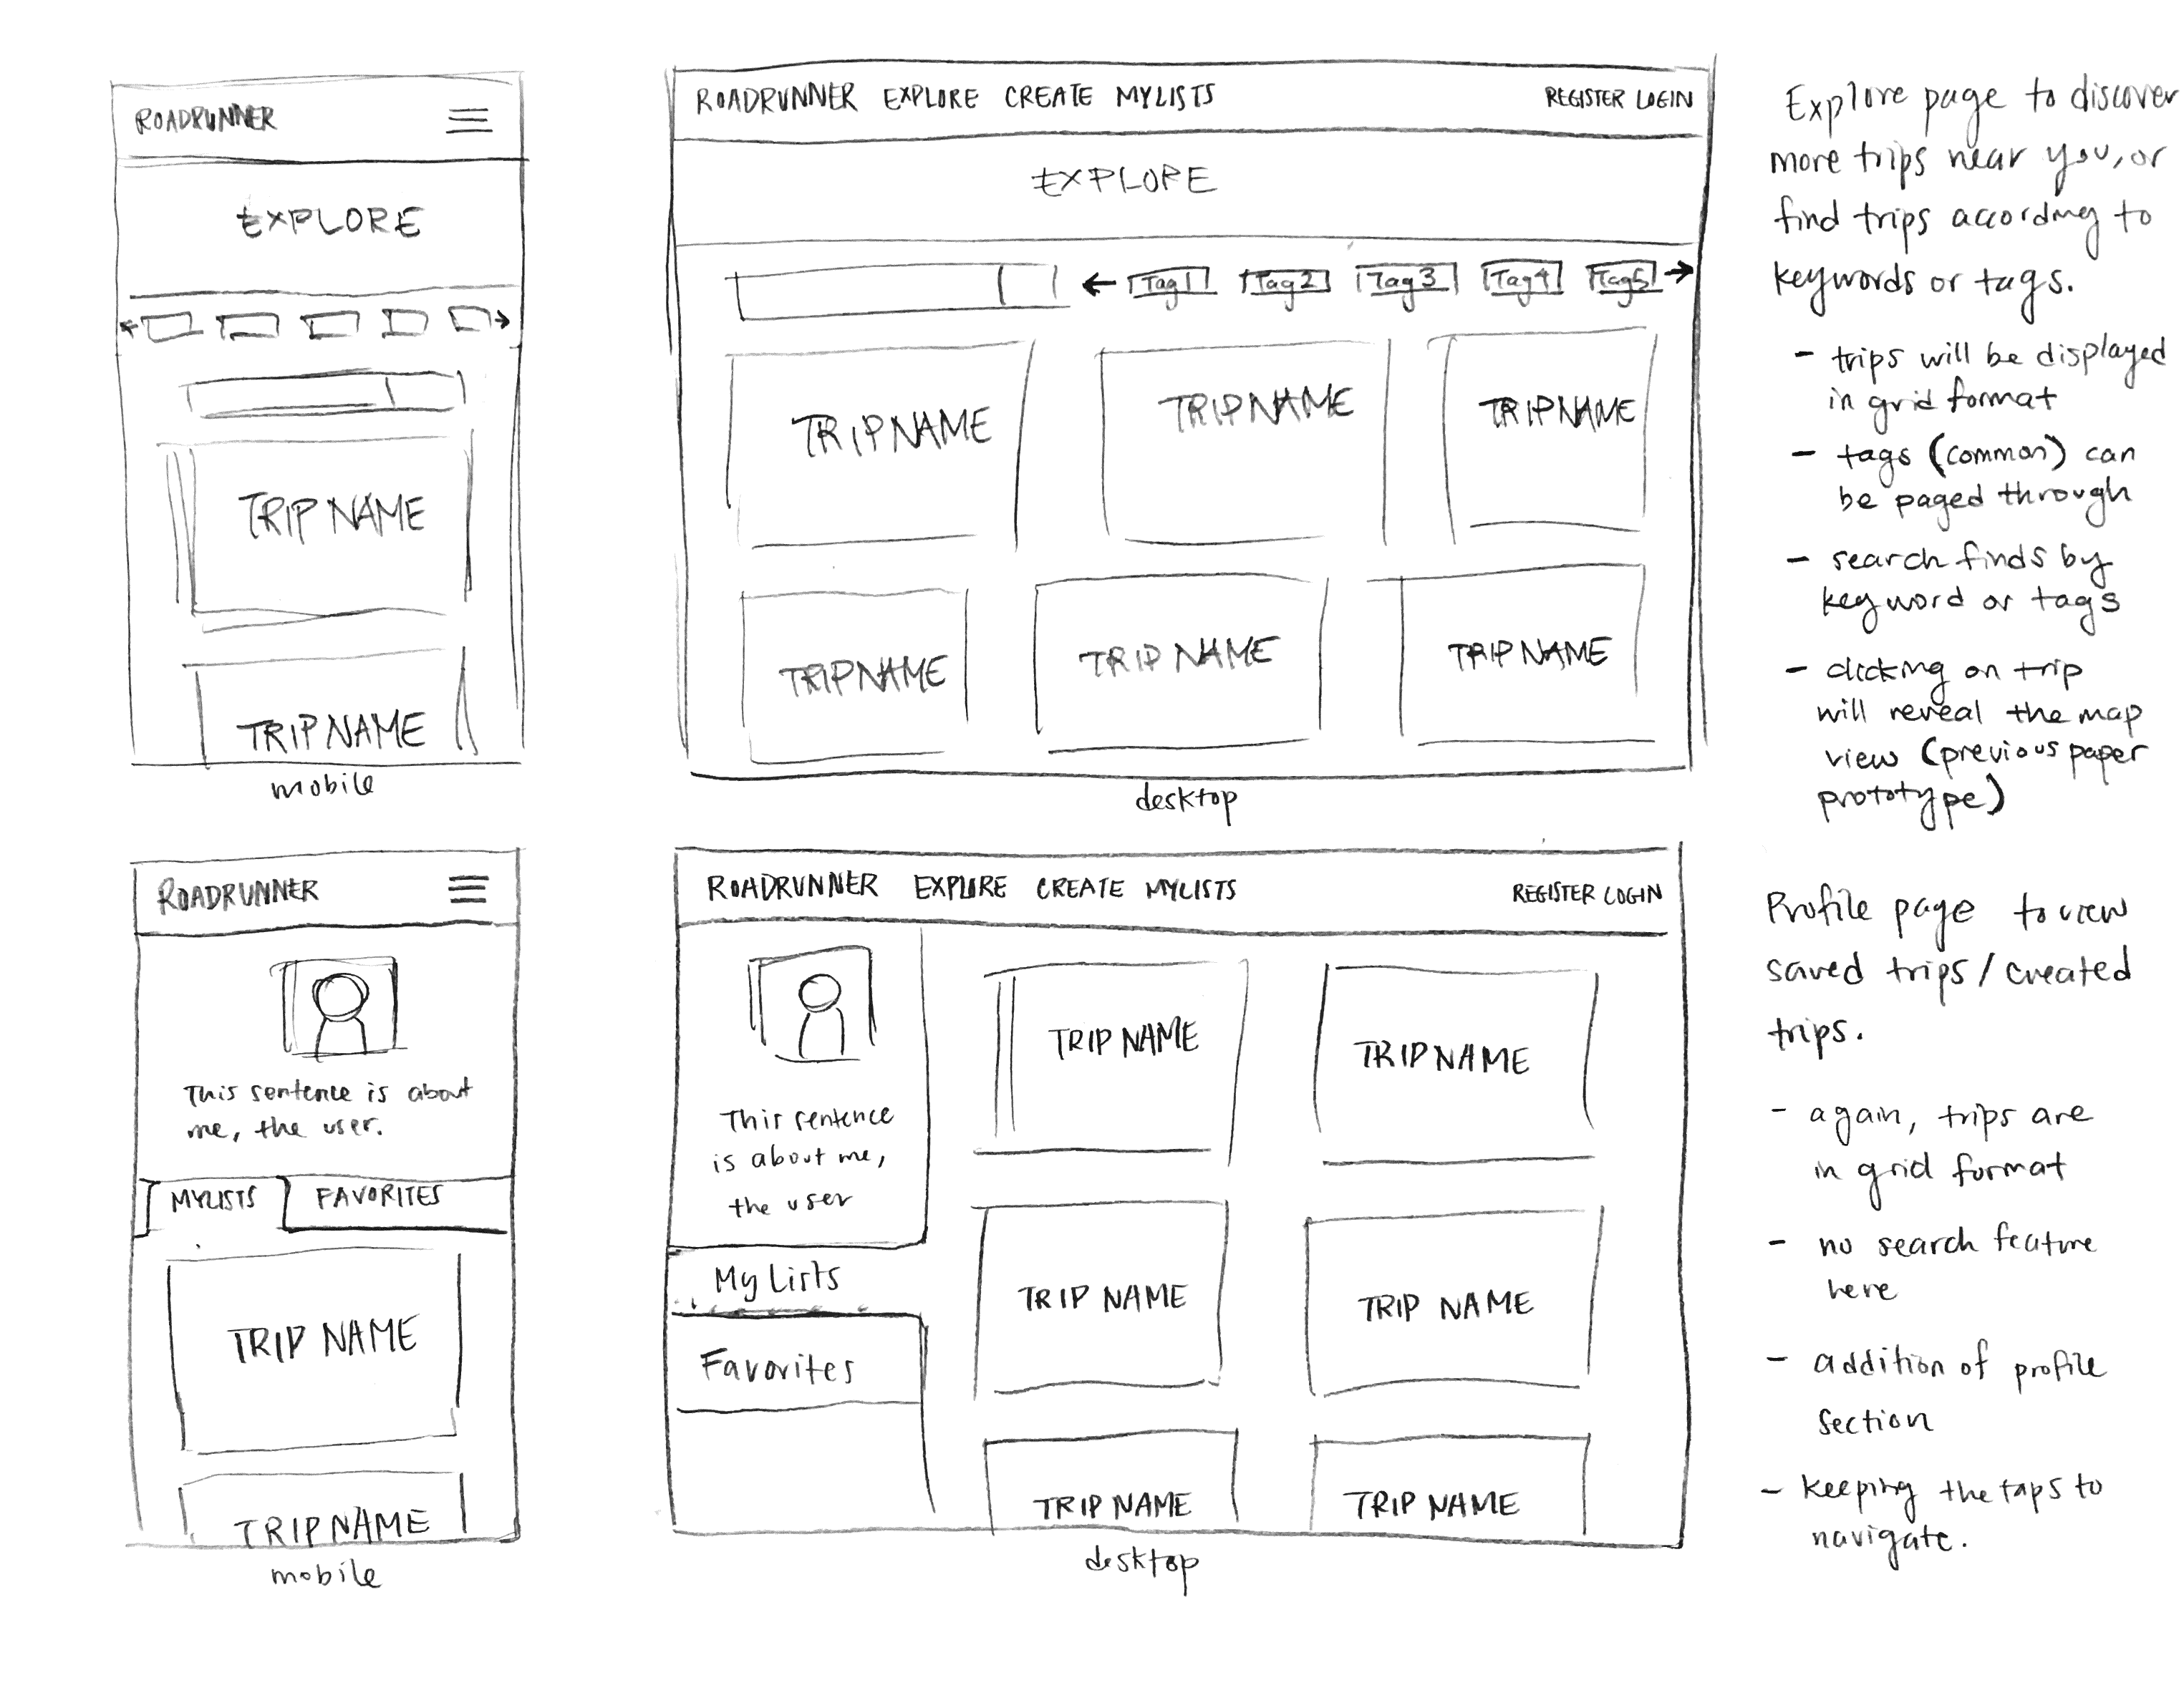 ROADRUNNER
EXPLORE
TRIP NAME
TRIP NAME
mobile
ROADRUNNER EXPLORE CREATE MYLISTS REGISTER LOGIN
EXPLORE
Tag1 Tag2 Tag3 Tag4 Tag5
TRIPNAME TRIPNAME TRIPNAME
TRIPNAME TRIP NAME TRIP NAME
desktop
Explore page to discover
more trips near you, or
find trips according to
keywords or tags.
- trips will be displayed
in grid format
- tags (common) can
be paged through
- search finds by
keyword or tags
- clicking on trip
will reveal the map
view (previous paper
prototype)
ROADRUNNER
This sentence is about
me, the user.
MYLISTS FAVORITES
TRIP NAME
TRIPNAME
mobile
ROADRUNNER EXPLORE CREATE MYLISTS REGISTER LOGIN
This sentence
is about me,
the user
My Lists
Favorites
TRIP NAME TRIPNAME
TRIP NAME TRIP NAME
TRIP NAME TRIP NAME
desktop
Profile page to view
saved trips / created
trips.
- again, trips are
in grid format
- no search feature
here
- addition of profile
section
- keeping the taps to
navigate.